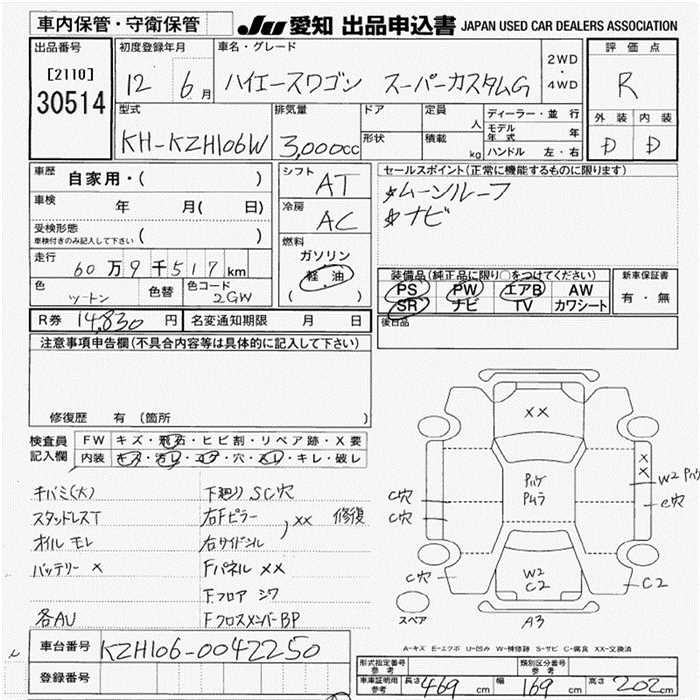 車内保管・守衛保管 JU 愛知 出品申込書 JAPAN USED CAR DEALERS ASSOCIATION
出品番号 初度登録年月 車名・グレード 評価点
[2110] 12 6月 ハイエースワゴン スーパーカスタムG 2WD・4WD R
30514 型式 排気量 ドア 定員 人 ディーラー・並行 外装 内装
KH-KZH106W 3,000cc 形状 積載 kg モデル年式 年 D D
ハンドル 左・右
車歴 自家用・( ) シフト AT セールスポイント(正常に機能するものに限ります)
車検 年 月( 日) 冷房 AC ムーンルーフ
受検形態 ( ) ナビ
車検付きのみ記入して下さい
燃料
ガソリン
軽油
( )
走行 60万9千517km
色 ツートン 色替 色コード 2GW
装備品(純正品に限り○をつけてください) 新車保証書
PS PW エアB AW 有・無
SR ナビ TV カワシート
R券 14,830円 名変通知期限 月 日 後日品
注意事項申告欄(不具合内容等は具体的に記入して下さい)
修復歴 有(箇所 )
検査員 FW キズ・飛石・ヒビ割・リペア跡・X要
記入欄 内装 キズ・汚レ・コゲ・穴・スレ・キレ・破レ
チバミ(大) 下廻り SC穴
スタッドレスT 右Fピラー ,XX 修復
オイル モレ 右サイドシル
バッテリー X Fパネル XX
Fフロア シワ
各AU FクロスメンバーBP
XX
X
X
W2
C穴
C穴
C穴
W2
C2
C2
A3
スペア
A-キズ E-エクボ U-凹み W-補修跡 S-サビ C-腐食 XX-交換済
車台番号 KZH106-0042250
登録番号
形式指定番号 参考 類別区分番号 参考
車庫証明用 参考 長さ 469cm 幅 169cm 高さ 202cm